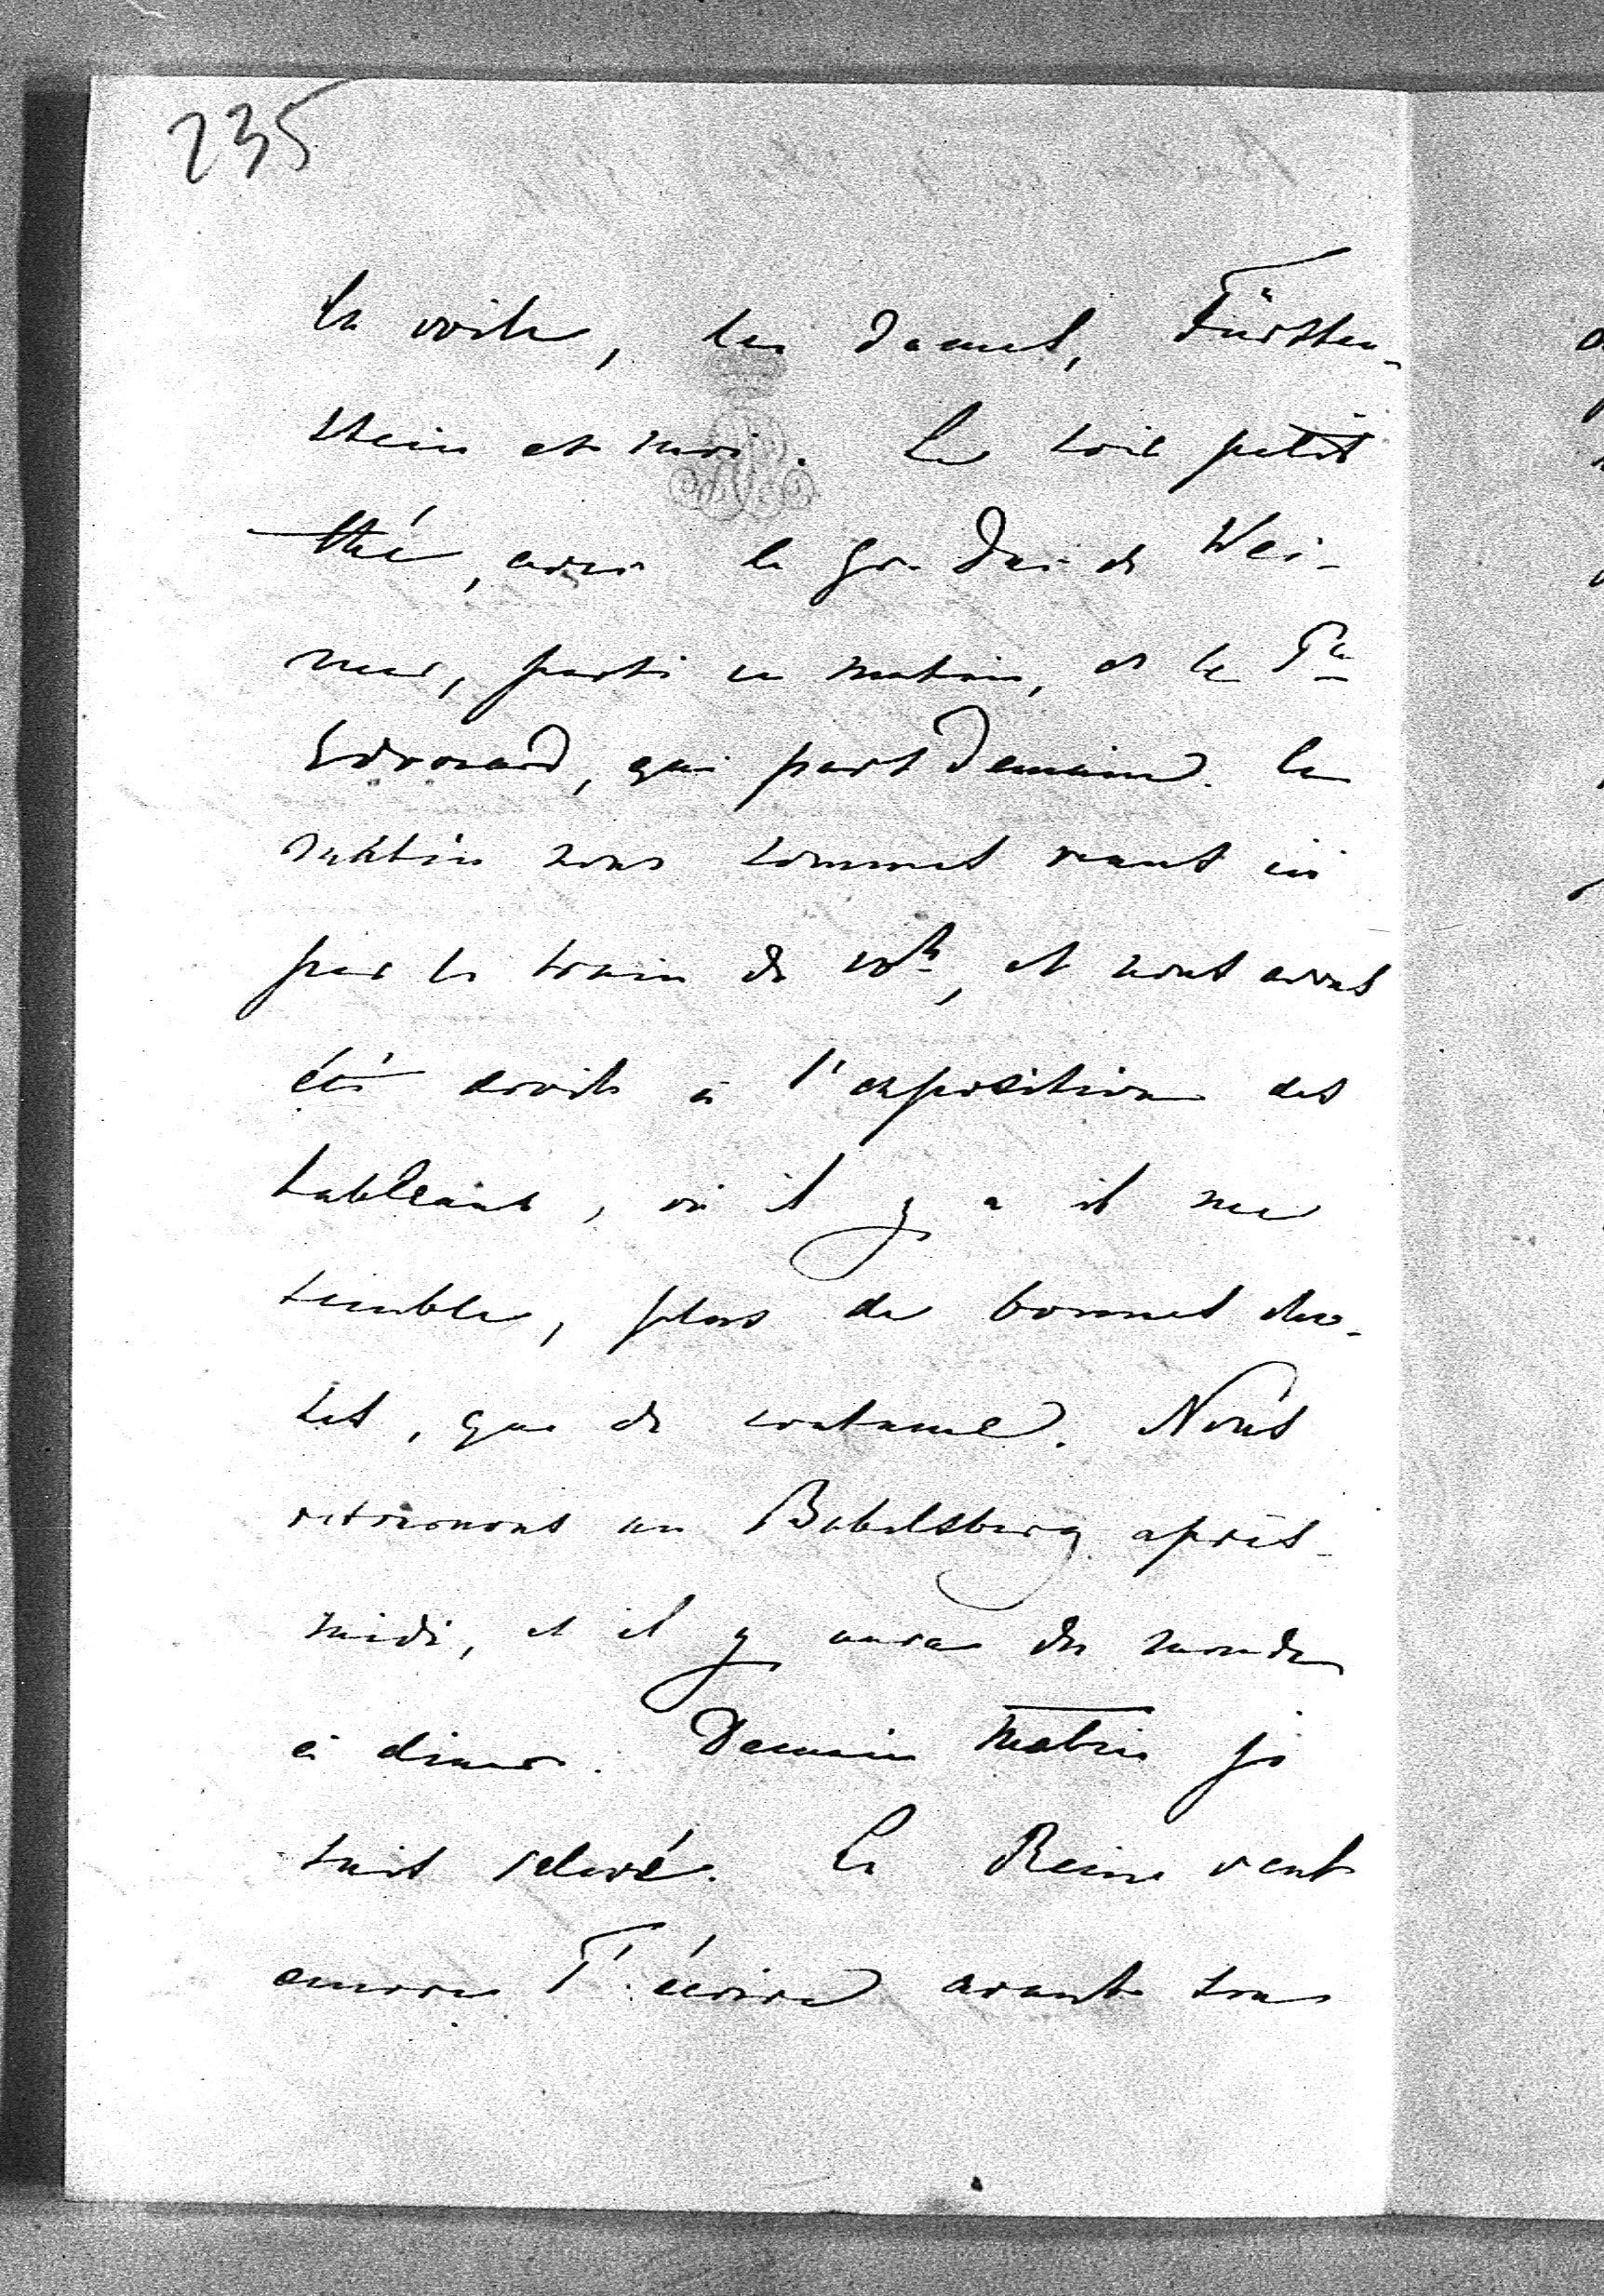 235
la voile, les dames, Fürsten-
stein et moi. Le soir petit
thé, avec le Gr. Duc de Wei-
mar, parti ce matin, et le Pce
Edouard, qui part demain. Ce
matin nous sommes venus ici
par le train de 10h, et nous avons
été droit à l'exposition des
tableaux, où il y a il me
semble, plus de bonnes cho-
ses, que de coutume. Nous
retournons au Babelsberg après-
midi, et il y aura du monde
à diner. Demain matin je
suis relevé. La Reine veut
encore T'écrire avant son